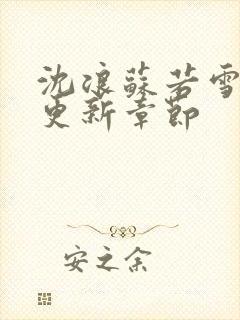 沈浪蘇若雪
更新章節
安之余